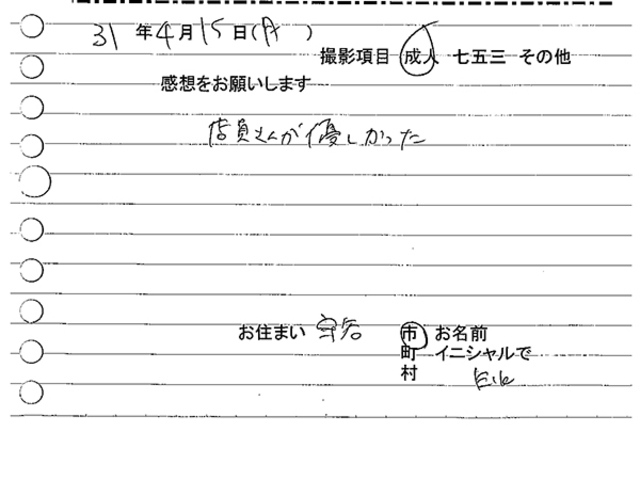 31 年 4 月 15 日(月)
撮影項目 成人 七五三 その他
感想をお願いします
店員さんが優しかった
お住まい 守谷 市 お名前
町 イニシャルで
村